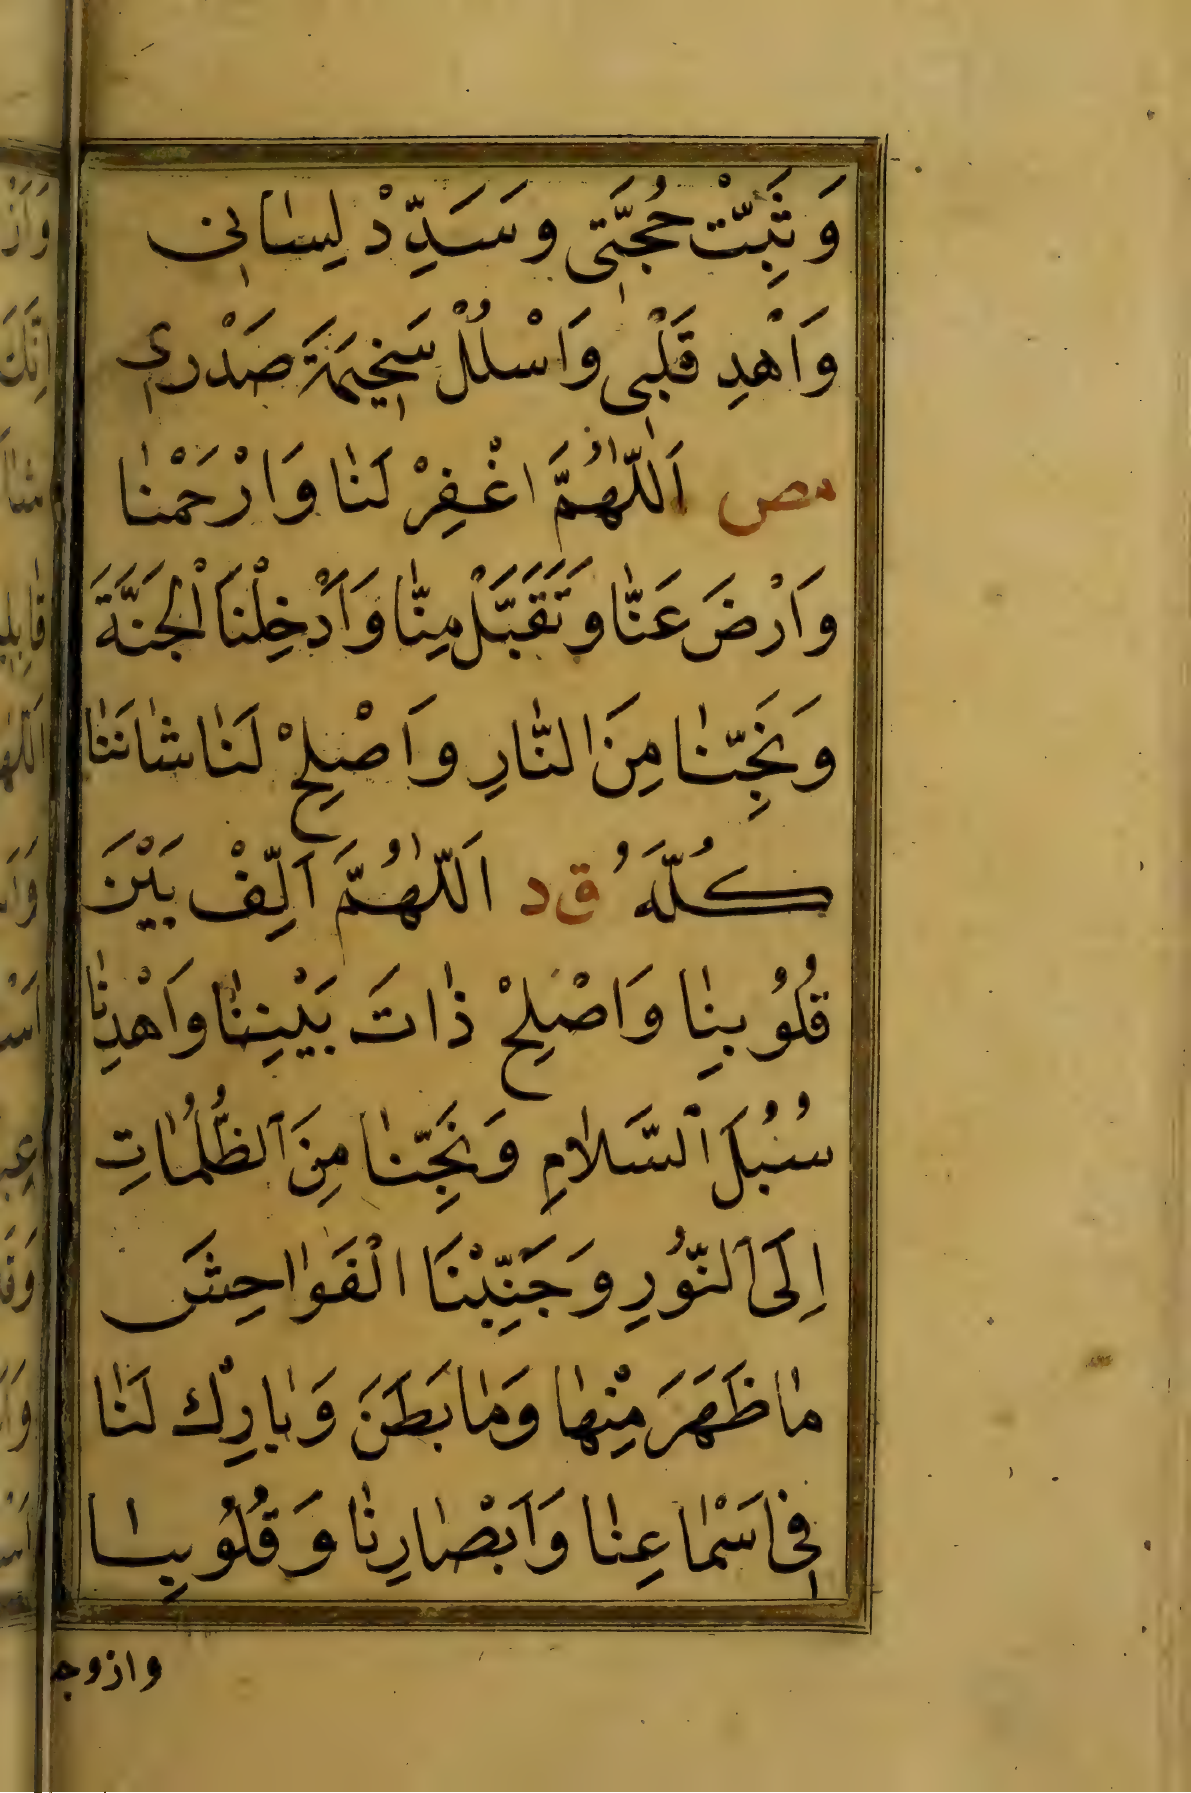 وَثَبِّتْ حُجَّتِى وَسَدِّدْ لِسَانِى
وَاَهْدِ قَلْبِى وَاَسْلُلْ سَخِيمَةَ صَدْرِى
مص اَللّٰهُمَّ اغْفِرْ لَنَا وَارْحَمْنَا
وَاَرْضَ عَنَّا وَتَقَبَّلْ مِنَّا وَاَدْخِلْنَا الْجَنَّةَ
وَنَجِّنَا مِنَ النَّارِ وَاَصْلِحْ لَنَا شَانَنَا
كُلَّهُ ق د اَللّٰهُمَّ اَلِّفْ بَيْنَ
قُلُوبِنَا وَاَصْلِحْ ذَاتَ بَيْنِنَا وَاَهْدِنَا
سُبُلَ السَّلَامِ وَنَجِّنَا مِنَ الظُّلُمَاتِ
اِلَى النُّورِ وَجَنِّبْنَا الْفَوَاحِشَ
مَا ظَهَرَ مِنْهَا وَمَا بَطَنَ وَبَارِكْ لَنَا
فِى اَسْمَاعِنَا وَاَبْصَارِنَا وَقُلُوبِنَا
وازوج